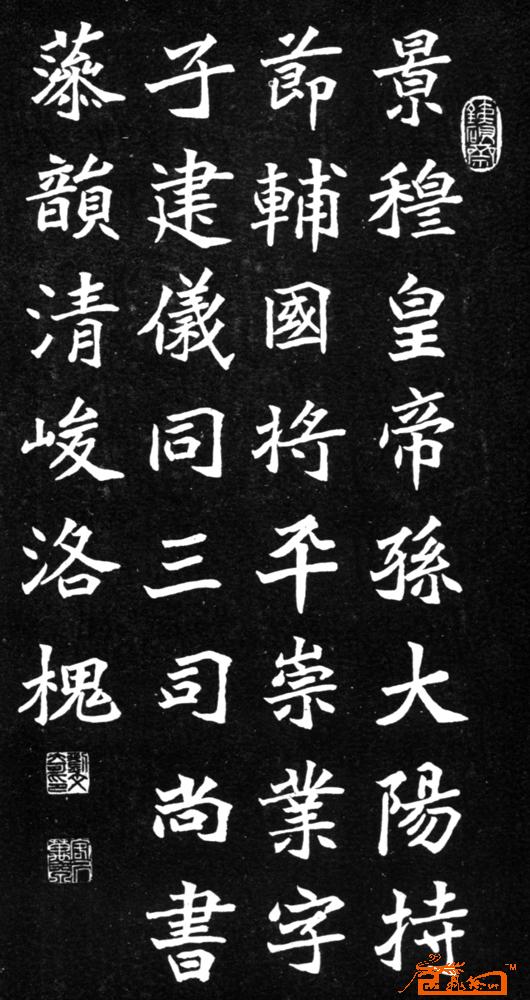 景穆皇帝孫大陽持
莭輔國将平崇業字
子建儀同三司尚書
藻韻清峻洛槐